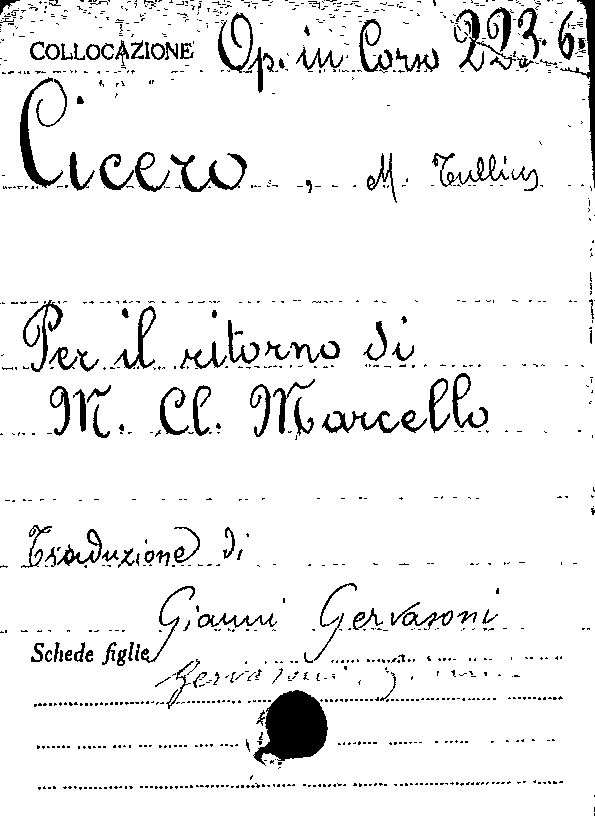 COLLOCAZIONE Op. in Corso 223.6.
Cicero, M. Tullius
Per il ritorno di
M. Cl. Marcello
Traduzione di
Gianni Gervasoni
Schede figlie
Gervasoni,